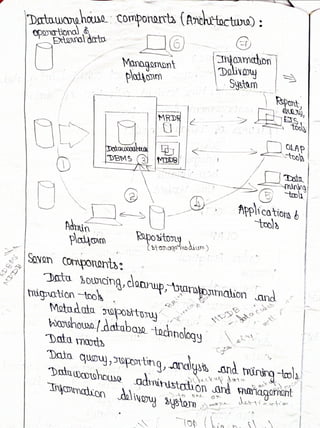 Datawarehouse components (Architecture):
operational &
External data
6
Management
platform
7
Information
Delivery
System
MRDB
Report,
query,
EIS
tools
Datawarehouse
DBMS 3
MDDB
OLAP
tools
Data
mining tools
1
2
4
5
Applications &
tools
Admin
platform
Repository
(storage medium)
Seven components:
Data sourcing, cleanup, transformation and
migration tools
Metadata repository
Warehouse/database technology
Data marts
Data query, reporting, analysis and mining tools
Datawarehouse administation and management
Information delivery system